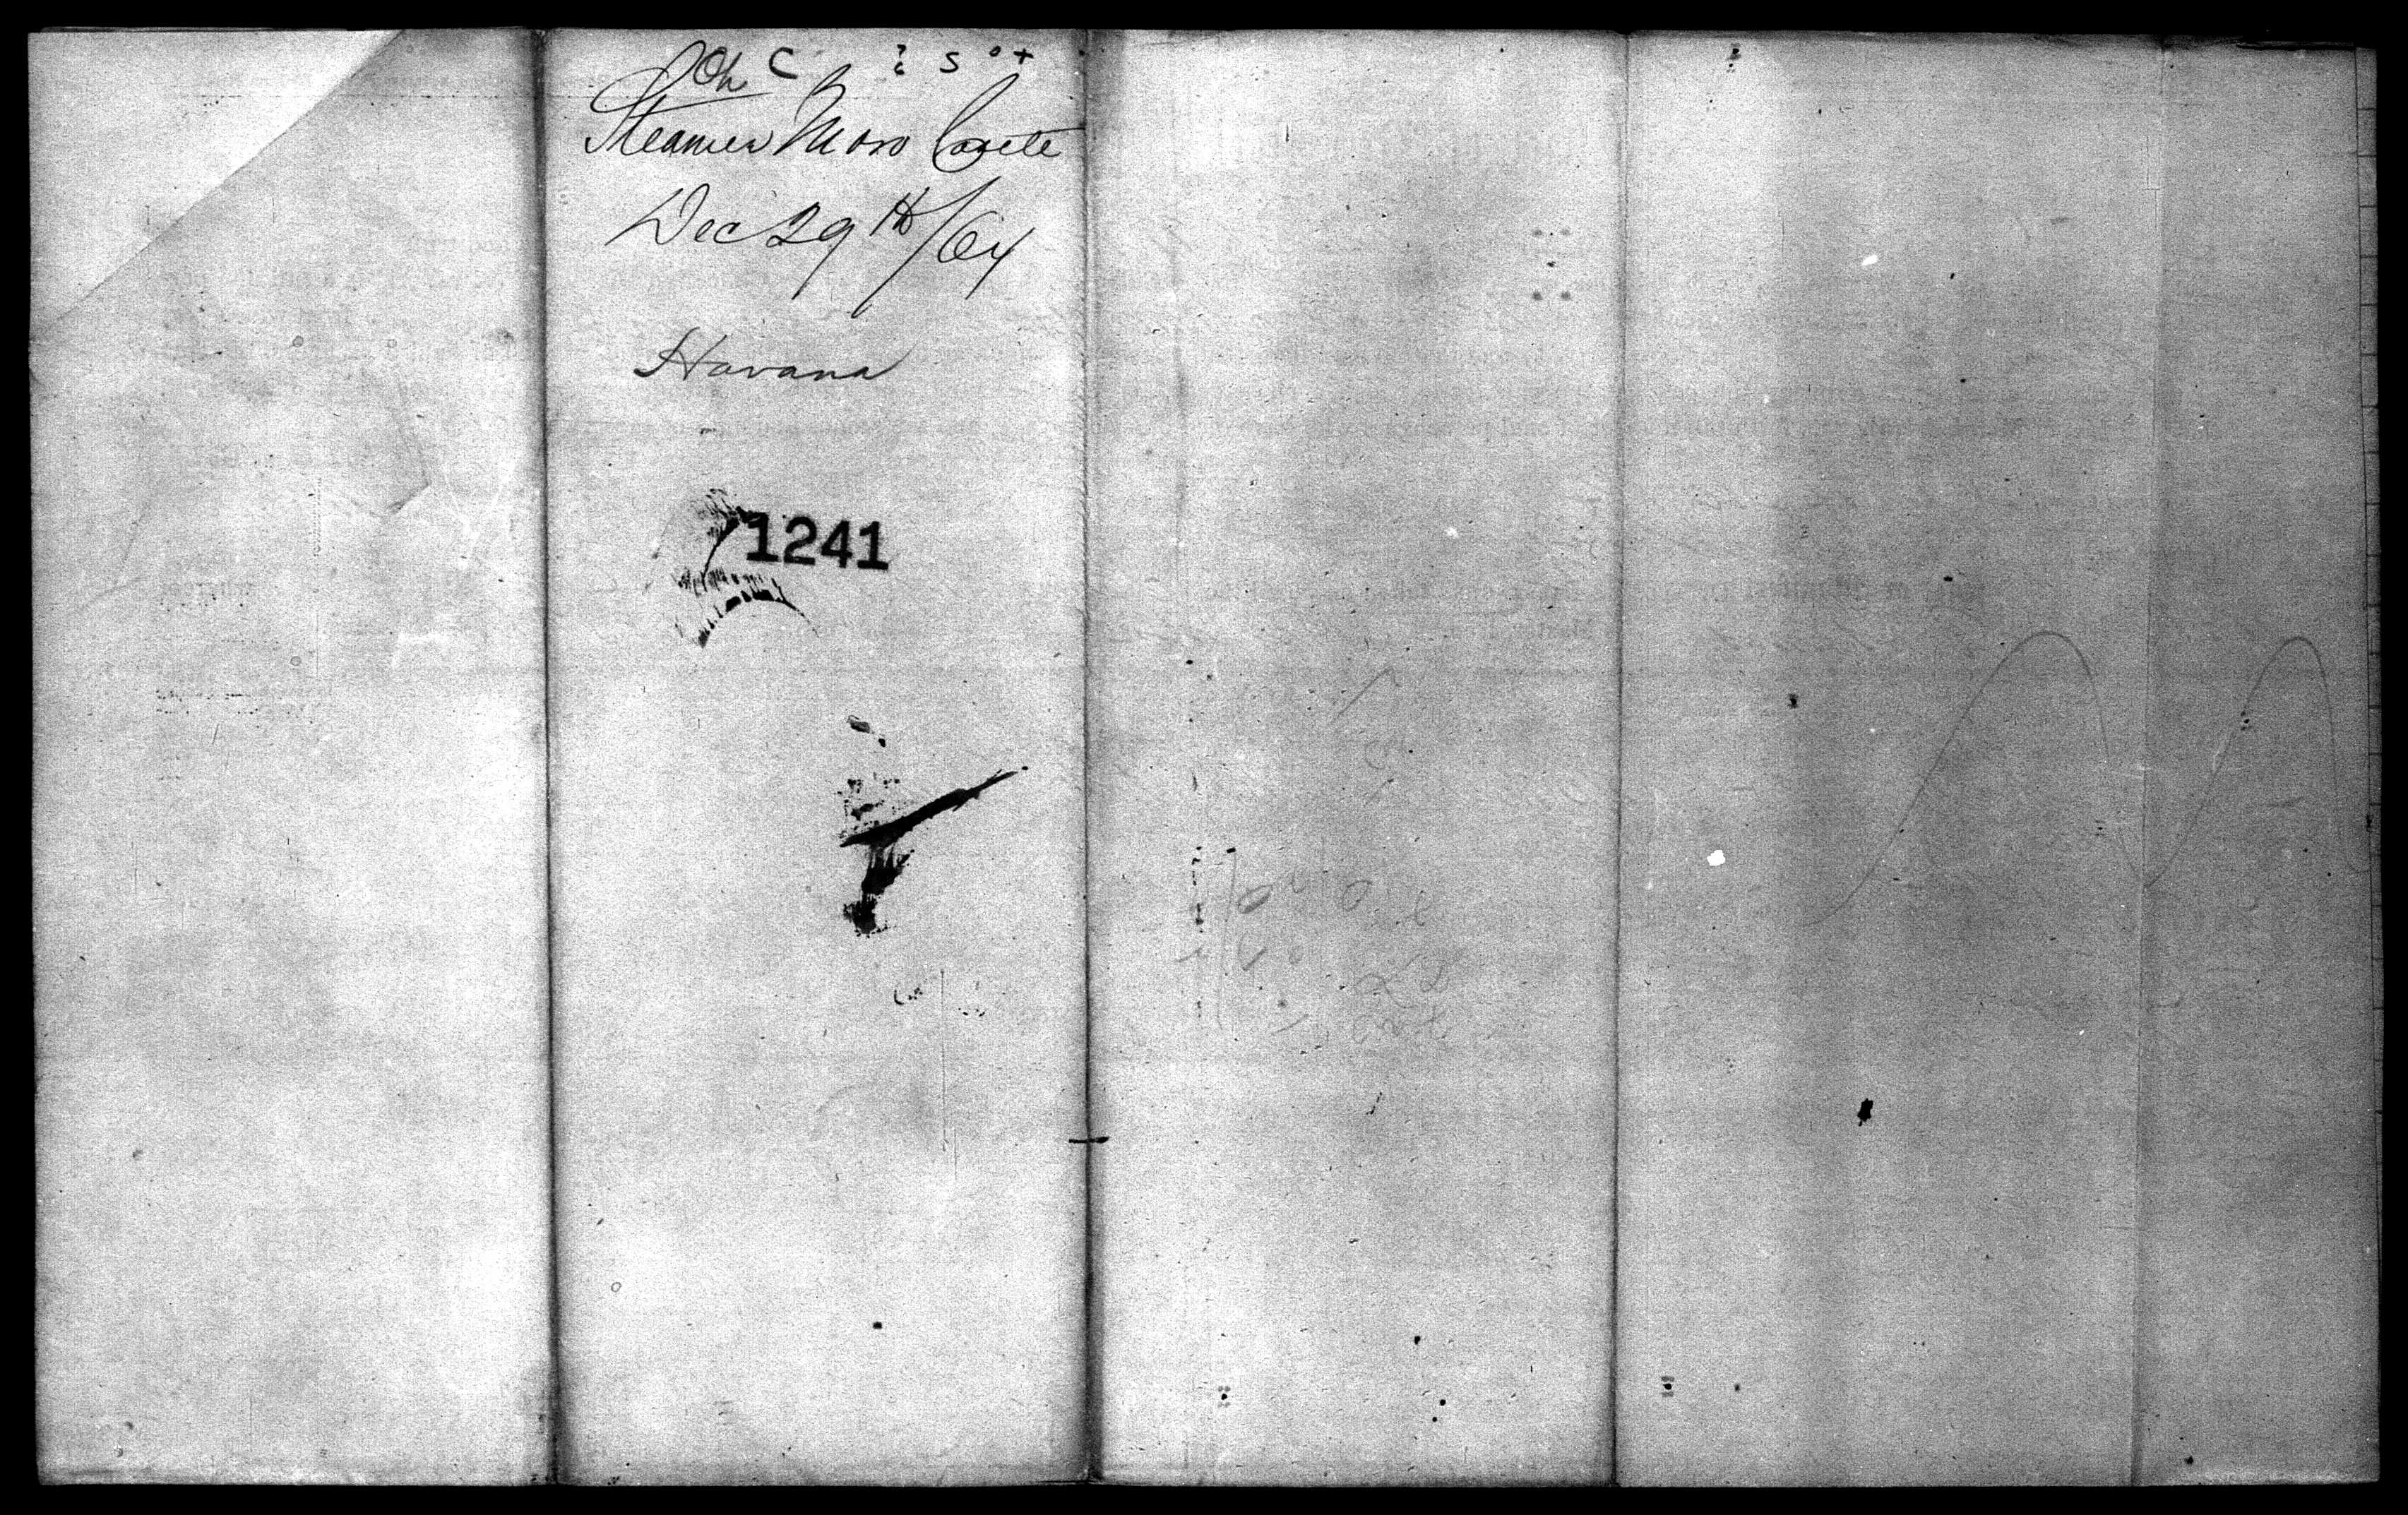 Ch C
Steamer Moro Castle
Dec 29th/64
Havana
1241